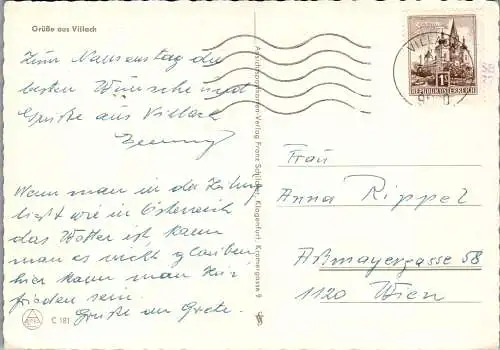 Grüße aus Villach
Zum Namenstag die
besten Wünsche und
Grüße aus Villach
Wenn man in der Zeitung
liest wie in Österreich
das Wetter ist, kann
man es nicht glauben,
hier kann man zu-
frieden sein.
Grüße an Grete.
C 181
Ansichtspostkarten-Verlag Franz Schilcher, Klagenfurt, Kramergasse 9
VILLACH
1S
REPUBLIK ÖSTERREICH
Frau
Anna Rippel
Aßmayergasse 58
1120 Wien